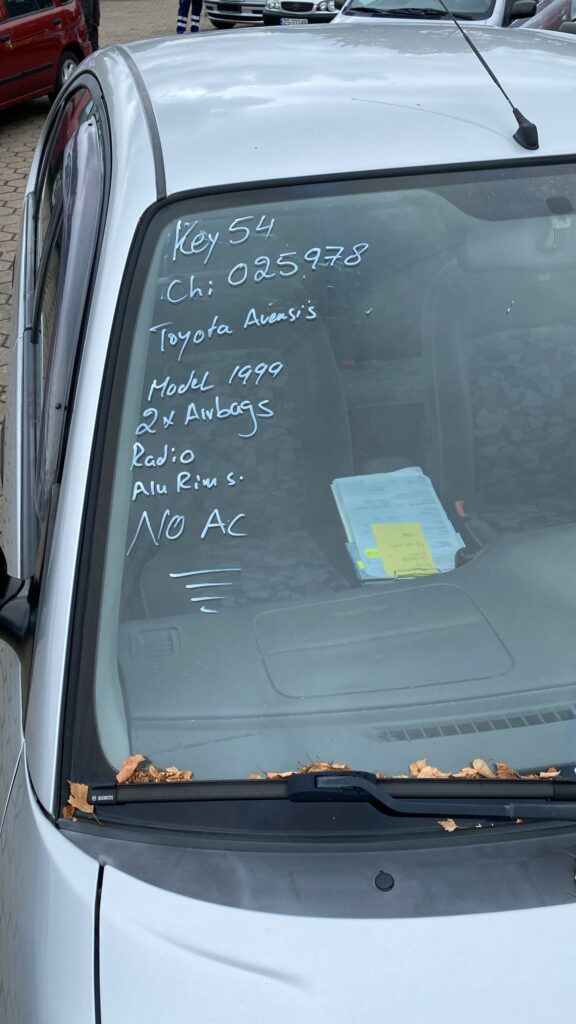 Key 54
Ch: 025978
Toyota Avensis
Model 1999
2x Airbags
Radio
Alu Rims.
NO AC
BOSCH